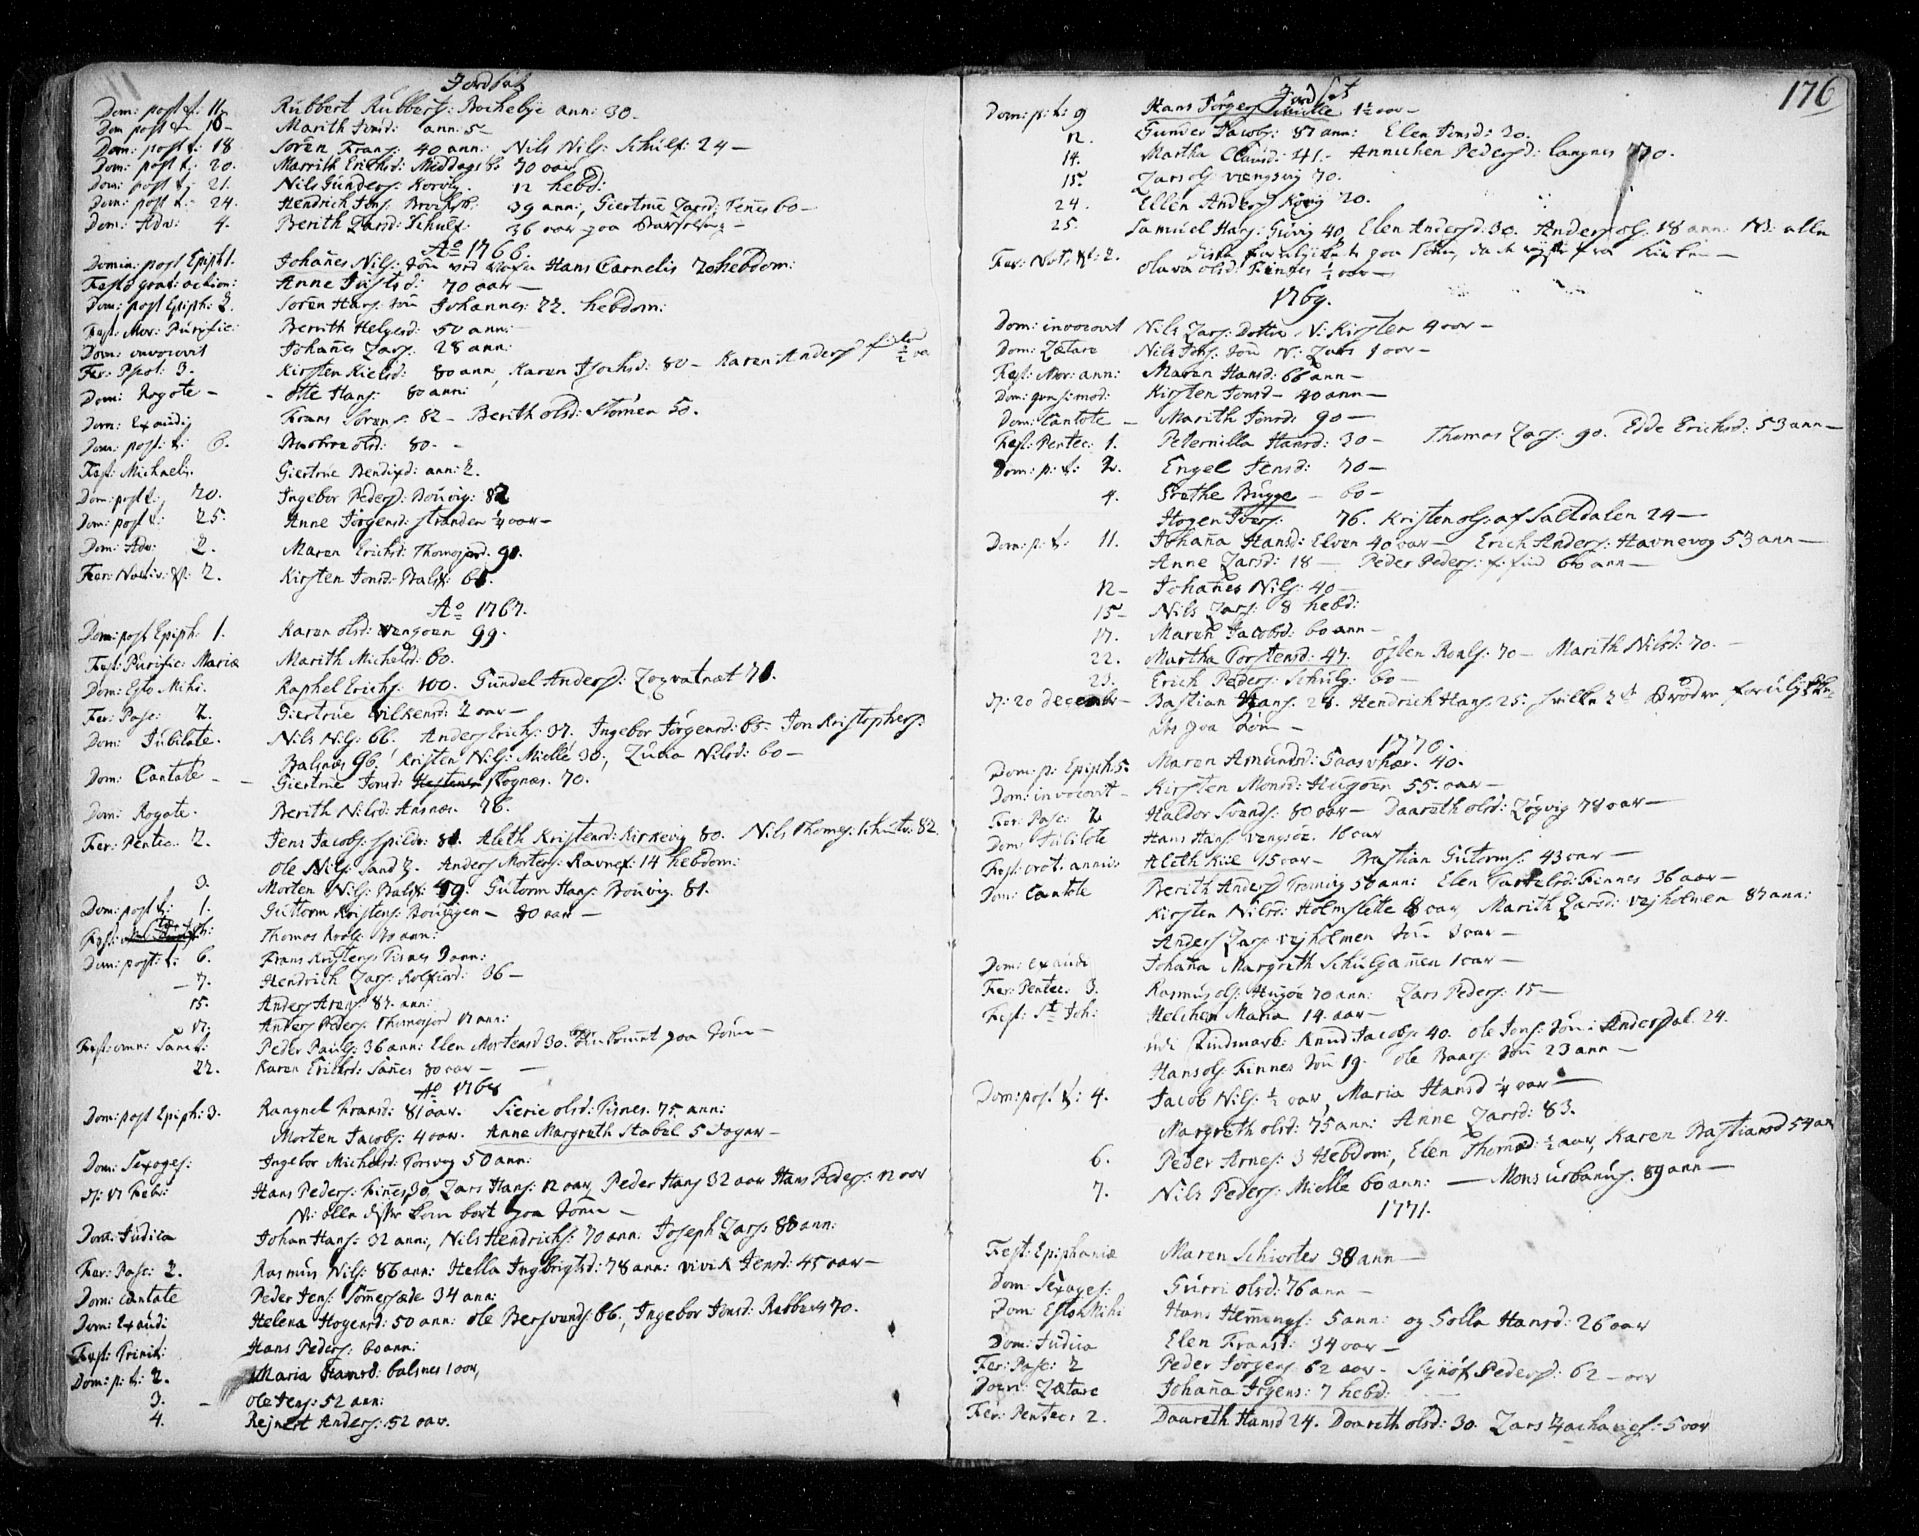 Jordsat
Dom: post t: 16. Rubbert Rubberts: Bochebye ann: 30.
Dom post tr 10- Marith Jonsd: ann: 5-
Dom: post t: 18 Sören Frans: 40 ann: Nils Nils: Schulf: 24 -
Dom: post t: 20. Marrith Erichsd: 70 aar
Dom: post t: 21. Nils Gunders: 12 hebd:
Dom: post t: 24. Hendrich Jens: 39 ann:, Giertrue Larsd: 60 -
Dom: Adv: 4. Berith Larsd: Schulf: 36 aar paa Barselseng -
Ao 1766.
Domin: post Epiph 1. Johañes Nils: Hans Carnelis 20 hebdom:
Festo grat: action: Anne Justsd: 70 aar -
Dom: post Epiph: 2. Sören Hans: Sön Johannes: 22. hebdom:
Fest: Mar: Purific: Berrith Helgesd: 50 ann:
Dom: invocavit Johañes Lars: 28 ann:
Fer: Pscat: 3. Kirsten Nielsd: 80 ann, Karen Isachsd: 80 - Karen Andersd ½ aar
Dom: Rogate - - Otte Hans: 80 ann:
Dom: Exaudi Frans Sörens: 82 - Berith olsd: 50.
Dom: post: t: 6. Barbra olsd: 80 - -
Fest: Michaelis Giertrue Bendixd: ann: 2.
Dom: post t: 20. Ingebor Pedersd: Bouvig: 82
Dom: post t: 25. Anne Jörgensd: Stranden ¼ aar -
Dom: Adv: 2. Maren Erichsd: Thomasjord. 90.
Fer: Nativ: X: 2. Kirsten Jonsd: Balsf: 61.
Ao 1767.
Dom: post Epiph: 1. Karen olsd: Vengsöen 99.
Fest: Purific: Mariæ Marith Michelsd: 60.
Dom: Esto Mihi. Raphel Erichs: 100. Gundel Andersd: 71.
Fer: Pasc: 2. Giertrue Vilkensd: 2 aar -
Dom: Jubilate. Nils Nils: 66. Anders Erichs: 37. Ingebor Jörgensd: 65 - Jon Kristophers:
Balsnes 96. Kristen Nils: Mielle 30., Zuba Nilsd: 60 -
Dom: Cantate - - Giertrue Jonsd: Skognæs. 70.
Dom: Rogate. Berith Nilsd: Ansnæs. 76.
Fer: Pentec: 2. Jens Jacobs: Spildr: 81. Aleth Kristensd: Kirkevig 80. Nils Thomes: 82.
Ole Nils: Sand 2. Anders Mortens: Ravnef: 14 hebdom:
3. Morten Nils: Balsf: 49. Gutorm Hans: Bouvig. 81.
Dom: post t: 1. Guttorm Kristens: - 80 aar -
Thomas Roals: 70 ann:
Dom: post: t: 6. Frans Kristens: Tisnes 9 ann:
- 7. Hendrich Lars: 36 -
15. Anders Arens: 87. ann:
17. Anders Peders: Thomasjord 17 ann:
Fest: omn: Sanct: Peder Pauls: 36 ann: Elen Mortensd 30. paa Söen -
22. Karen Erichsd: 80 aar - -
Ao 1768
Dom: post Epiph: 3. Rangnel Fransd: 81 aar. Sierie olsd: Tisnes. 75. ann:
Morten Jacobs: 4 aar. Anne Margreth Stabel 5 Dager -
Dom: Sexages: Ingebor Michelsd: Torsvog 50 ann:
D: 17 Febr: Hans Peders: Finnes 30, Lars Hans: 12 aar, Peder Hans 32 aar Hans Peders: 12 aar
N: alle disse kom bort paa Söen -
Dom: Judica Johan Hans: 32 ann:, Nils Hendrichs: 70 ann: Joseph Lars: 88 ann:
Fer: Pasc: 2. Rasmus Nils: 86 ann: Hella Ingbrigtsd: 78 ann: Jensd: 45 aar -
Dom: cantate Peder Jens: Somersæde 34 ann:
Dom: Exaudi Helena Hogensd: 50 ann: Ole Bersvends: 86., Ingebor Jonsd: 70.
Fest: Trinit: Hans Peders: 60 ann:
Dom: p: t: 2. Maria Hansd: balsnes 1 aar,
3. - Ole Jens: 52 ann:
4. Rejnert Anders: 52 aar.
176
Jordsat
Dom: p: t: 9 Hans Jörgens Mielle 1½ aar -
12. Gunder Jacobs: 87 ann: Elen Jonsd: 20.
14. Martha Clausd: 41. - Annichen Pedersd: langnes 70.
15. Larsols Vengsvig 70.
24. Ellen Andersd 20.
25. Samuel Hans: 40, Elen Andersd: 30. Anders ols: 18 ann: NB: alle
disse forulykkede paa Söen, da de reyste fra Kirken -
Fer: Nat: X: 2. Olava olsd: Finnes ½ aar -
1769.
Dom: invocavit Nils Lars: Dotter N: Kirsten 4 aar -
Dom: Lætare Nils Jons: Sön N: Lars 9 aar -
Fest: Mar: ann: Maren Hansd: 66 ann -
Dom: quasimod: Kirsten Jonsd - 40 ann -
Dom: Cantate - Marith Jonsd: 90 -
Fest: Pentec: 1. Peternilla Hansd: 30 - Thomas Lars: 90. Edde Erichsd: 53 ann -
Dom: p: t: 2. Engel Jensd: 70 -
4. Grethe Bugge - 60 -
Hogen Ivers: 76. Kristen ols: af Saltdalen 24 -
Dom: p: t: 11. Johaña Hansd: Elven 40 aar - Erich Anders: Havnevog 53 ann -
Anne Larsd: 18 - Peder Peders: 60 ann -
12 - Johañes Nils: 40 -
15 - Nils Lars: 8 hebd:
17. Maren Jacobsd: 60 ann -
22. Martha Torstensd: 47. Roals: 70 - Marith Nilsd: 70. -
23. Erich Peders: Schulg: 60 -
D: 20 December - Bastian Hans: 28. Hendrich Hans: 25. hvilke 2de Brödre forulykke-
des paa Söen -
1770.
Dom: p: Epiph: 5. Maren Amundsd: Gaasvhær. 40.
Dom: invocavit - Kirsten Monsd: Hugöen 55. aar -
Fer: Pasc: 2 Haldor Svends: 80 aar - Daareth olsd: 78 aar -
Dom: Jubilate Hans Hans: Vengsöe. 16 aar
Fest: orat: annis Aleth Kiil 15 aar - Bastian Gutorms: 43 aar -
Dom: Cantate Berith Andersd 50 ann: Elen Finnes 36 aar -
Kirsten Nilsd: Holmslette 8 aar, Marith Larsd: Vejholmen 87 ann:
Anders Lars: Vejholmen Sön 3 aar -
Dom: exaudi Johaña Margreth 1 aar -
Fer: Pentec: 3. Rasmus ols: Hugöe 70 ann: Lars Peders: 15 -
Fest: St Joh: Helchen Maria 14. aar -
udi Findmark: Knud Jacobs: 40. Ole Jens: Sön: Andersdal. 24.
Hans ols: Finnes Sön 19. Ole Baars: Sön 23 ann -
Dom: post t: 4. Jacob Nils: ½ aar, Maria Hansd ¼ aar -
Margreth olsd: 75 ann: Anne Larsd: 83.
6. Peder Arnes: 3 Hebdom:, Elen Thomæd: ½ aar, Karen Bastiansd 54 ann
7. Nils Peders: Mielle 60 ann: - Mons urbanus: 89 ann -
1771.
Fest: Epiphaniæ Maren Schiortes 38 ann -
Dom: Sexages: Gurri olsd: 76 ann -
Dom: Esto Mihi Hans Hemings: 5 ann: og Solla Hansd: 26 aar
Dom: Judica Elen Fransd: 34 aar -
Fer: Pasc: 2 Peder Jörgens: 62 aar - Synöf Pedersd: 62 - aar
Dom: Lætare Johaña Irgens: 7 hebd:
Fer: Pentec: 2. Daareth Hansd 24. Daareth olsd: 30. Lars Zacharies: 5 aar